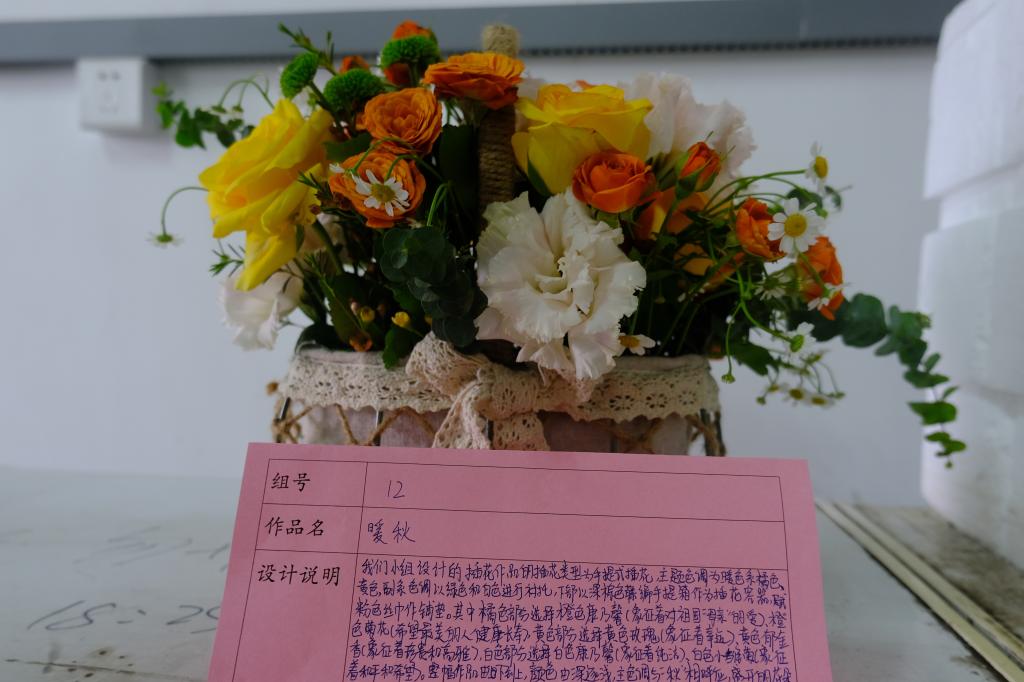 组号 12
作品名 暖秋
设计说明 我们小组设计的插花作品的插花类型为手提式插花,主题色调为暖色系橘色、
黄色,副系色调以绿色和白色进行衬托,下部以深棕色藤编手提篮作为插花容器,
粉色丝巾作铺垫。其中橘色部分选择橙色康乃馨(象征着对祖国母亲的爱),橙
色菊花(希望最美的人健康长寿),黄色部分选择黄色玫瑰(象征着幸运),黄色郁金
香(象征着珍贵和高雅),白色部分选择白色康乃馨(象征着纯洁),白色小雏菊(象征
着和平和希望)。整幅作品由下到上,颜色由深逐浅,主色调与"秋"相呼应,
18:2